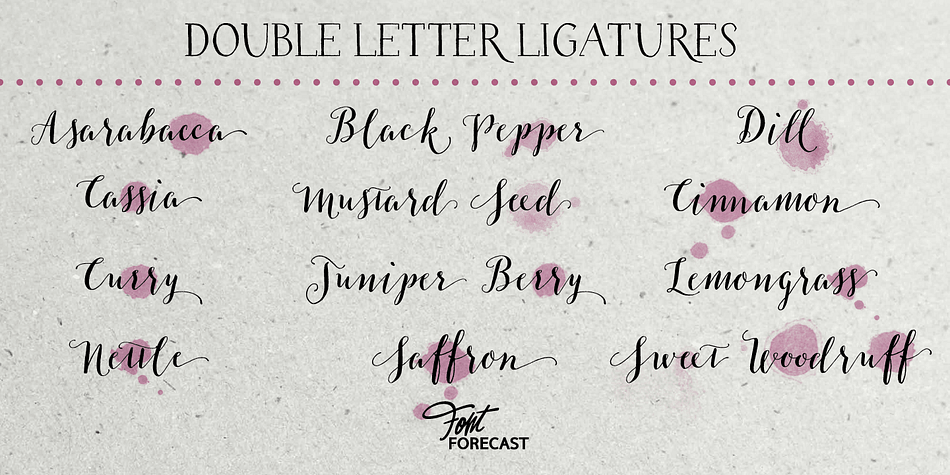 DOUBLE LETTER LIGATURES
Asarabacca Black Pepper Dill
Cassia Mustard Seed Cinnamon
Curry Juniper Berry Lemongrass
Nettle Saffron Sweet Woodruff
Font
FORECAST